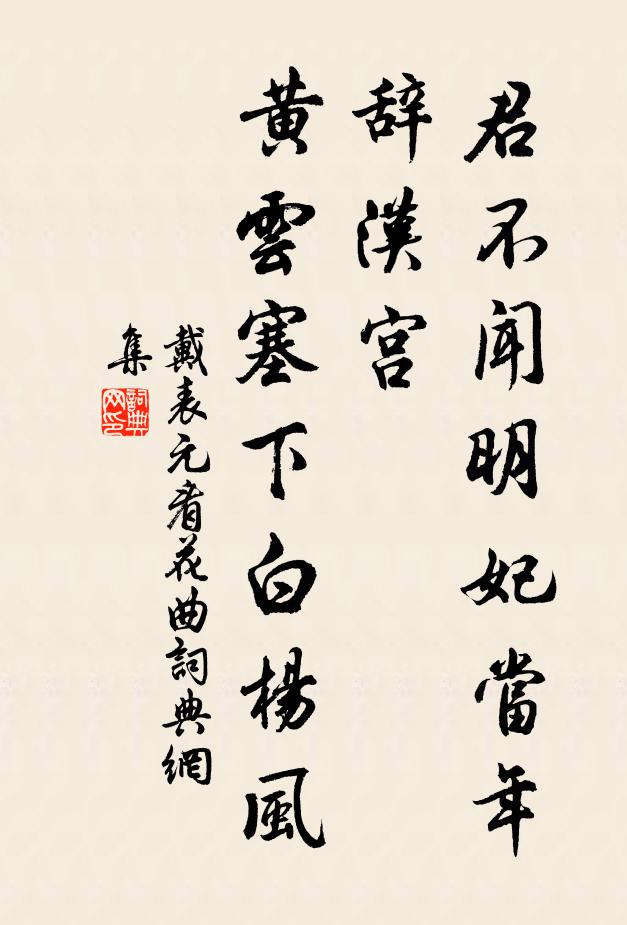 君不闻明妃當年
辞漢宫
黄雲塞下白楊風
戴表元看花曲詞典網
集
詞典
网印